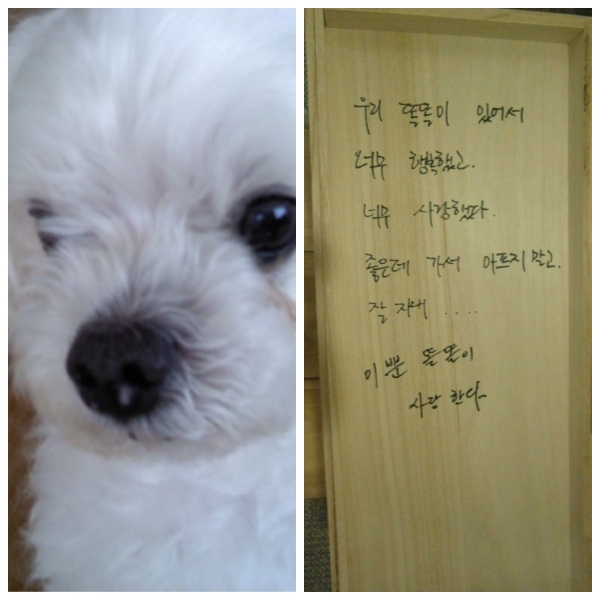 우리 똘똘이 있어서
너무 행복했고.
너무 사랑했다.
좋은데 가서 아프지말고.
잘 지내 ....
이뿐 똘똘이
사랑 한다~